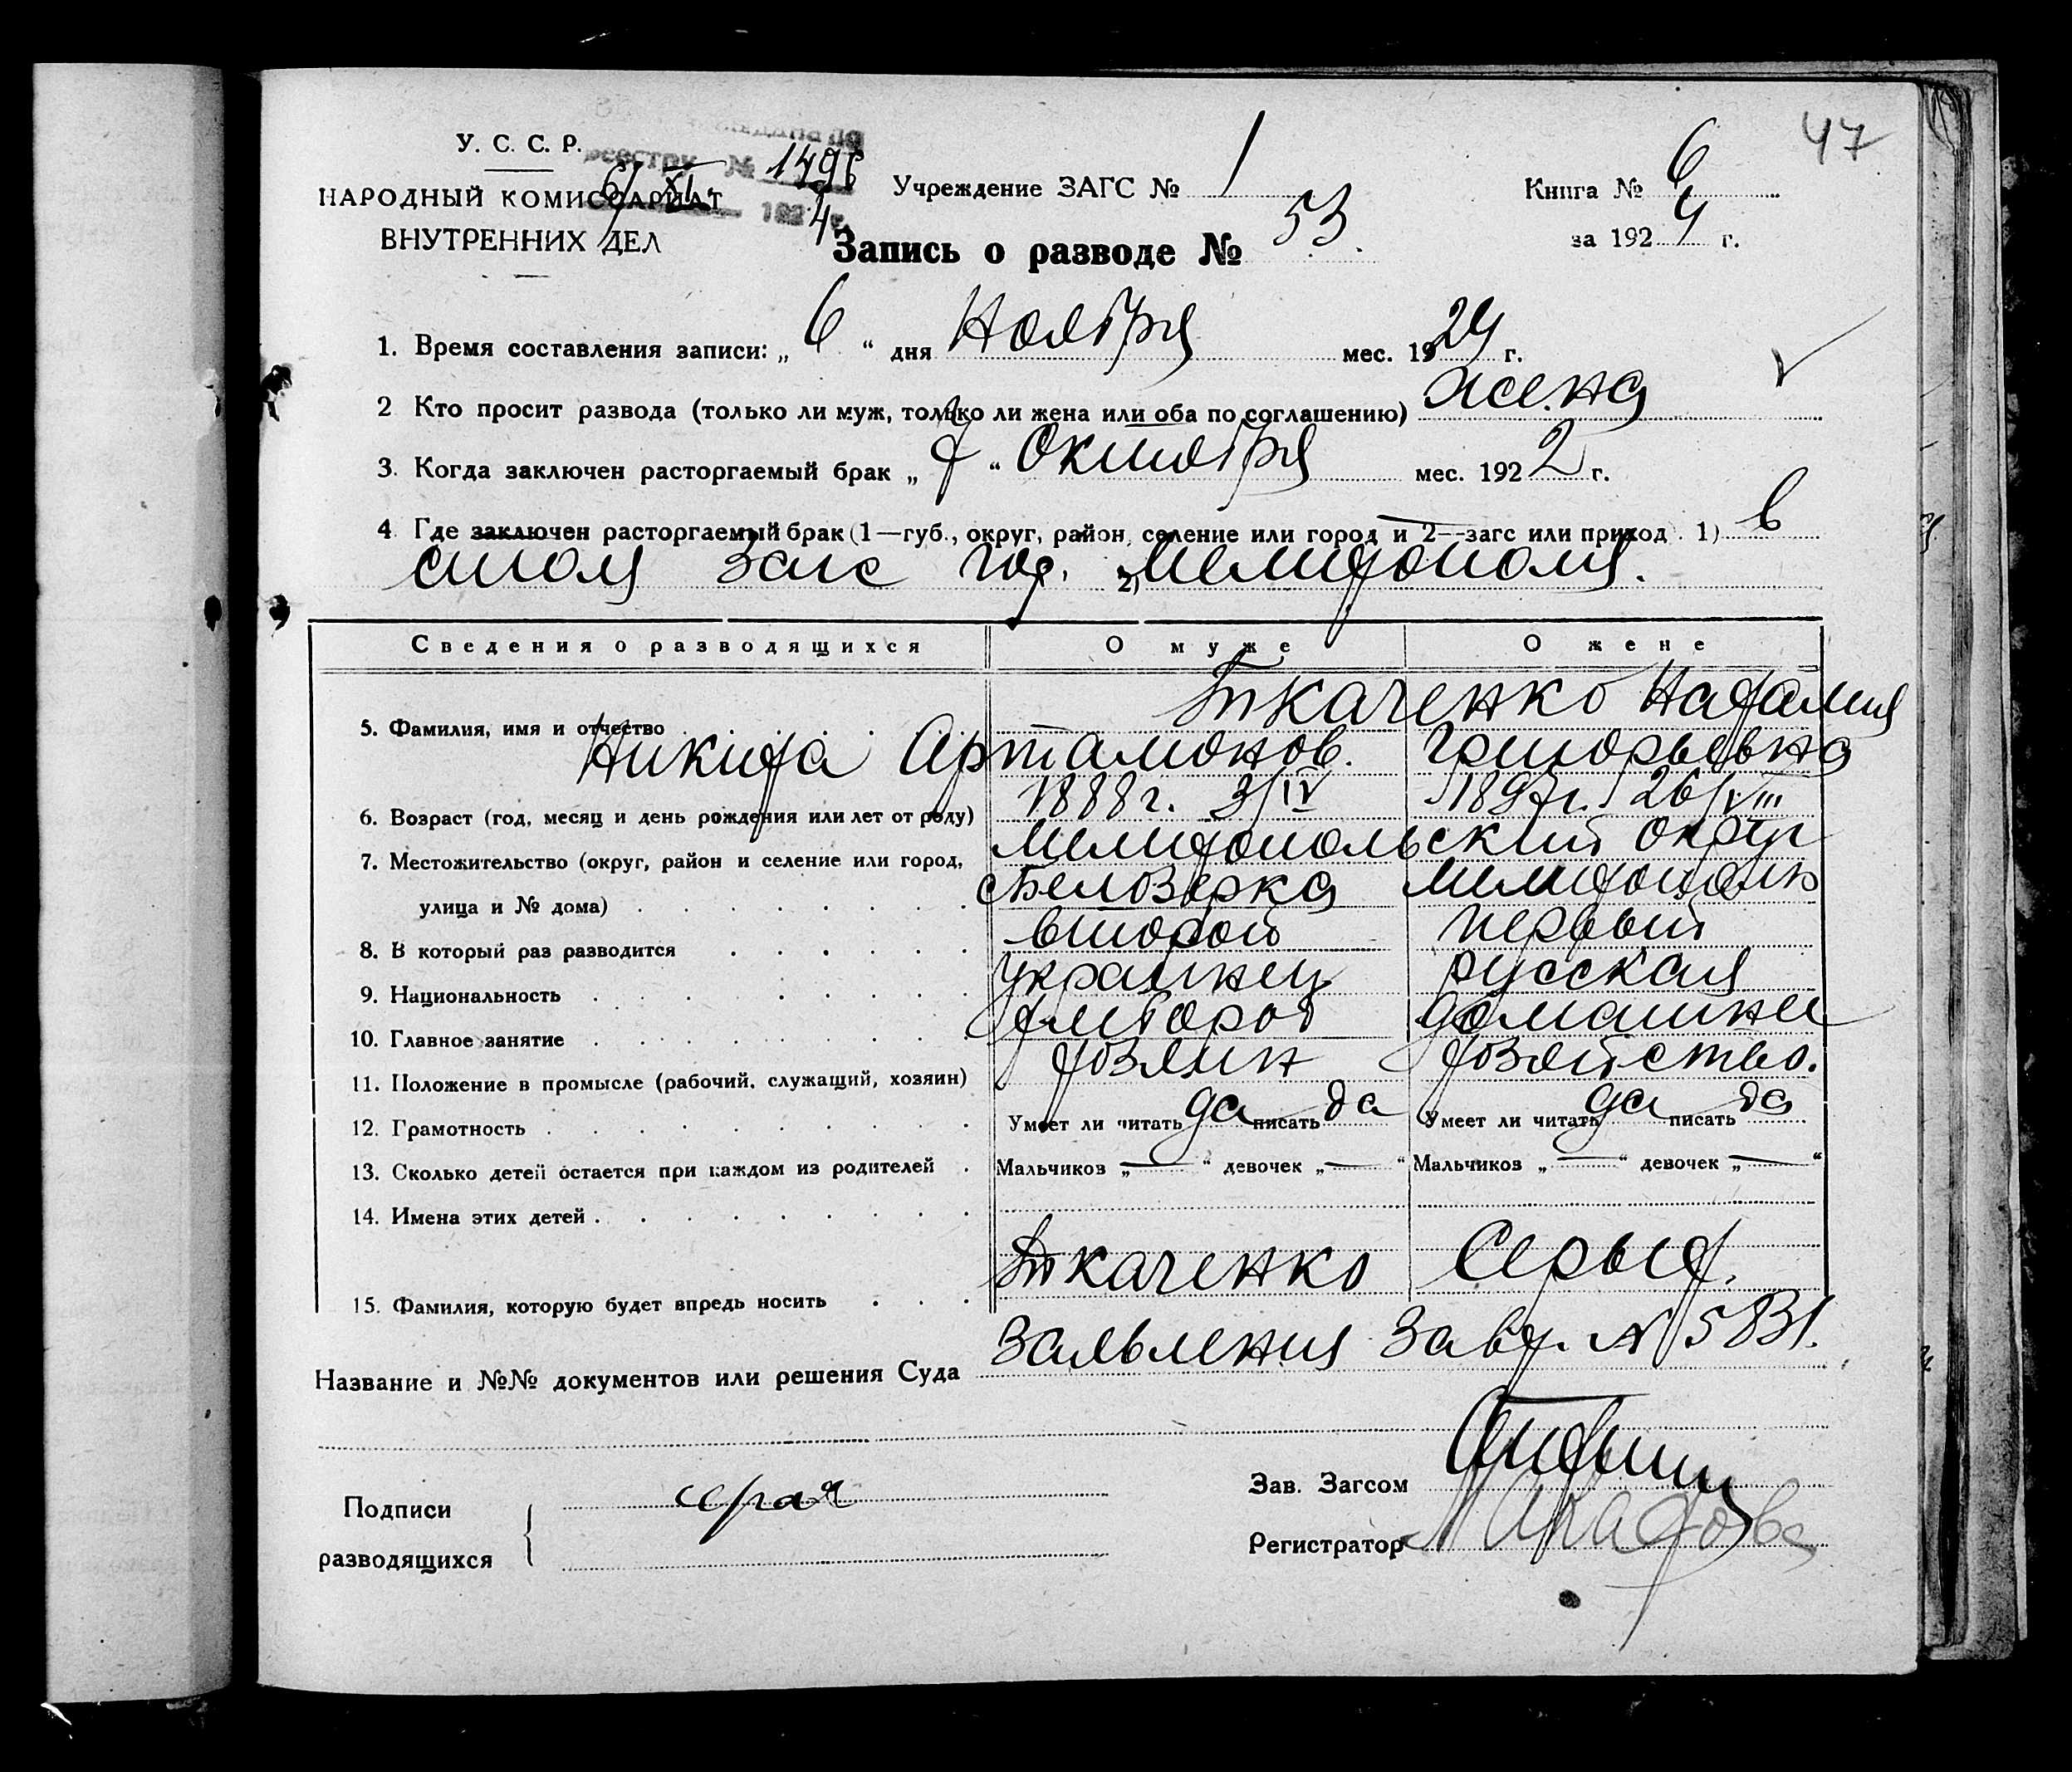 47
У. С. С. Р.
НАРОДНЫЙ КОМИССАРИАТ
ВНУТРЕННИХ ДЕЛ
№ 1496
6/XI 1924 г.
Учреждение ЗАГС № 1
Книга № 6
за 1924 г.
Запись о разводе № 53.
1. Время составления записи: „6“ дня Ноября мес. 1924 г.
2 Кто просит развода (только ли муж, только ли жена или оба по соглашению) жена
3. Когда заключен расторгаемый брак „7“ Октября мес. 1922 г.
4 Где заключен расторгаемый брак (1—губ., округ, район, селение или город и 2—загс или приход). 1) в
столя Загс гор. 2) Мелитополя.
Сведения о разводящихся О муже О жене
5. Фамилия, имя и отчество Ткаченко Наталия
Никита Артамонов. Григорьевна
6. Возраст (год, месяц и день рождения или лет от роду) 1888 г. 3/IV 1897 г. 26/VIII
7. Местожительство (округ, район и селение или город, Мелитопольский округ
улица и № дома) Белозерка Мелитополь
8. В который раз разводится второй первый
9. Национальность украинец русская
10. Главное занятие хлебороб домашнее
11. Положение в промысле (рабочий, служащий, хозяин) хозяин хозяйство.
12. Грамотность Умеет ли читать да писать да Умеет ли читать да писать да
13. Сколько детей остается при каждом из родителей Мальчиков „—“ девочек „—“ Мальчиков „—“ девочек „—“
14. Имена этих детей
15. Фамилия, которую будет впредь носить Ткаченко Серых.
Название и №№ документов или решения Суда Заявления Завер. № 5831.
Подписи
разводящихся
серая
Зав. Загсом
Регистратор